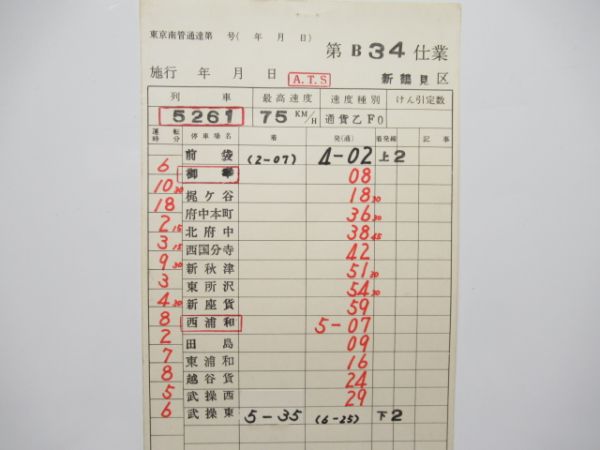 東京南管通達第 号( 年 月 日)
第 B 34 仕業
施行 年 月 日 A.T.S 新鶴見区
列車 最高速度 速度種別 けん引定数
5261 75 KM/H 通貨乙F0
運転時分 停車場名 着 発(通) 着発線 記事
前袋 (2-07) 4-02 上2
6
御幸 08
10 30
梶ケ谷 18 30
18
府中本町 36 30
2 15
北府中 38 45
3 15
西国分寺 42
9 30
新秋津 51 30
3
東所沢 54 30
4 30
新座貨 59
8
西浦和 5-07
2
田島 09
7
東浦和 16
8
越谷貨 24
5
武操西 29
6
武操東 5-35 (6-25) 下2